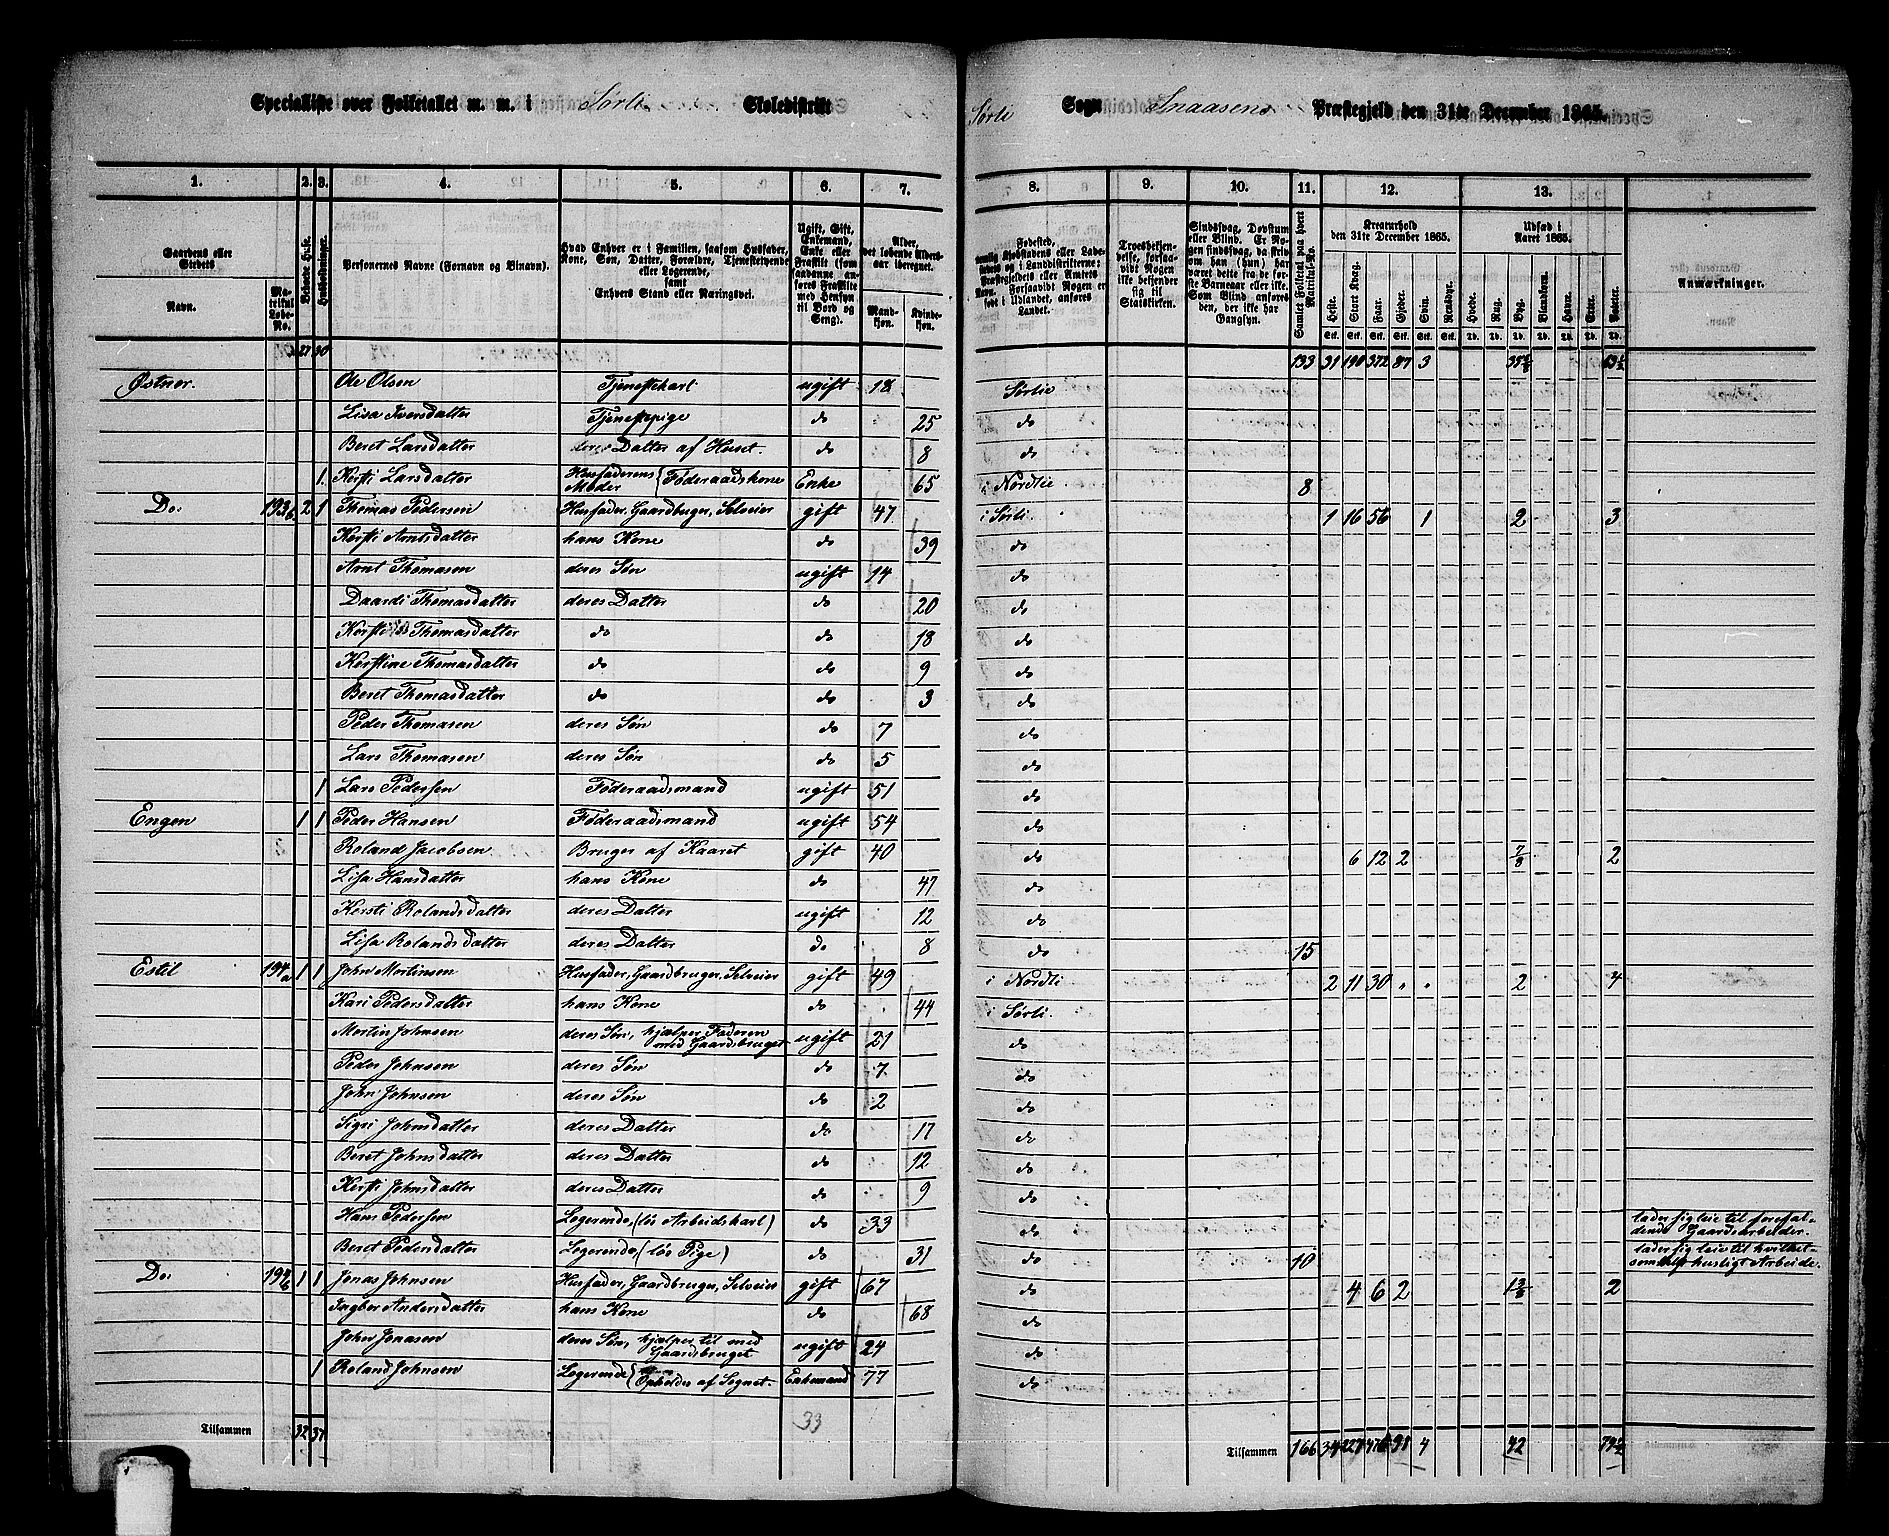 Specialliste over Folketallet m. m. i Sørli Skoledistrikt Sørli Sogn Snaasens Præstegjeld den 31te December 1865.
1. 2. 3. 4. 5. 6. 7. 8. 9. 10. 11. 12. 13.
Gaardens eller Stedets Navn. Matrikul Løbe-No. Beboede Huse. Husholdninger. Personernes Navne (Fornavn og Tilnavn).
Hvad Enhver er i Familien, saasom Husfader, Kone, Søn, Datter, Forældre, Tjenestetyende eller Logerende, samt Enhvers Stand eller Næringsvei.
Ugift, Gift, Enkemand, Enke eller Fraskilt
Alder, det løbende Aldersaar iberegnet. Mandkjøn. Kvindekjøn.
Samlet Folketal paa hvert Matrikul-No.
Kreaturhold den 31te December 1865. Heste. Stort Kvæg. Faar. Gjeder. Svin. Rensdyr.
Udsæd i Aaret 1865. Hvede. Rug. Byg. Blandkorn. Havre. Erter. Poteter.
Anmærkninger.
27 30 133 31 190 372 87 3
Østnor. Ole Olsen Tjenestekarl ugift 18 Sørlie
Lisa Iversdatter Tjenestepige do 25 do
Beret Larsdatter deres Datter af Huset. do 8 do
1 Kersti Larsdatter Husfaderens Moder Føderaadskone Enke 65 i Nordlie 8
Do 193b 2 1 Thomas Pedersen Husfader, Gaardbruger, Selveier gift 47 i Sørli 1 16 56 1 2 3
Kersti Arntsdatter hans Kone do 39 do
Arnt Thomasen deres Søn ugift 14 do
Daardi Thomasdatter deres Datter do 20 do
Kersti Thomasdatter do do 18 do
Kerstine Thomasdatter do do 9 do
Beret Thomasdatter do do 3 do
Peder Thomasen deres Søn do 7 do
Lars Thomasen deres Søn do 5 do
1 Lars Pedersen Føderaadsmand ugift 51 do
Engen 1 1 Peder Hansen Føderaadsmand ugift 54 do
Roland Jacobsen Bruger af Kaaret gift 40 do 6 12 2 7/8 2
Lisa Hansdatter hans Kone do 47 do
Kersti Rolandsdatter deres Datter ugift 12 do
Lisa Rolandsdatter deres Datter do 8 do 15
Estil 194a 1 1 John Mortinsen Husfader, Gaardbruger, Selveier gift 49 i Nordli 2 11 30 " " 2 4
Kari Pedersdatter hans Kone do 44 i Sørli.
Mortin Johnsen deres Søn, hjælper Faderen med Gaardsbruget ugift 21 do
Peder Johnsen deres Søn do 7 do
John Johnsen deres Søn do 2 do
Sigri Johnsdatter deres Datter do 17 do
Beret Johnsdatter deres Datter do 12 do
Kersti Johnsdatter deres Datter do 9 do
Hans Pedersen Logerende, (løs Arbeidskarl) do 33 do lader sig leie til forefaldende Gaardsarbeider.
Beret Pedersdatter Logerende, (løs Pige) do 31 do 10 lader sig leie til hvilketsomhelst husligt Arbeide.
Do 194b 1 1 Jonas Johnsen Husfader, Gaardbruger, Selveier gift 67 do 4 6 2 2
Ingber Andersdatter hans Kone do 68 do
John Jonasen deres Søn, hjælper til med Gaardsbruget ugift 24 do
1 Roland Johnsen Logerende Opholdes af Sognet. Enkemand 77 do
33
Tilsammen 32 37 Tilsammen 166 34 227 476 4 42